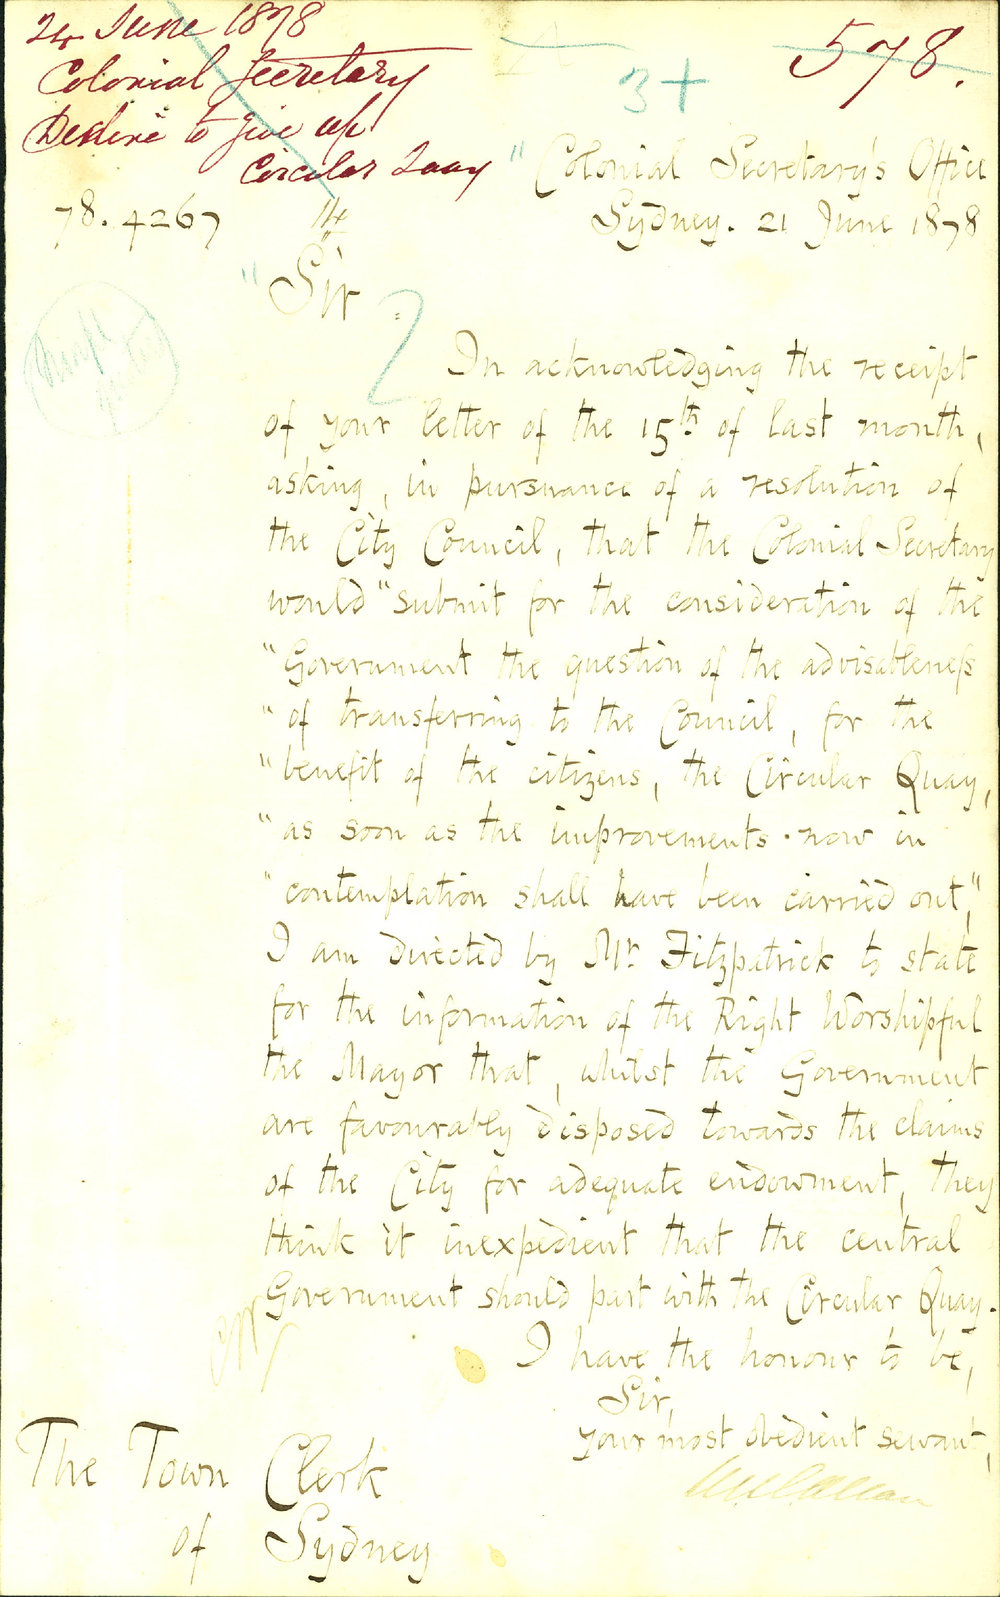 24 June 1878
Colonial Secretary
Decline to give up
Circular Quay
578.
3+
78.4267
14
"Colonial Secretary's Office
Sydney. 21 June 1878
"Sir
In acknowledging the receipt
of your letter of the 15th of last month,
asking, in pursuance of a resolution of
the City Council, that the Colonial Secretary
would "submit for the consideration of the
"Government the question of the advisableness
"of transferring to the Council, for the
"benefit of the citizens, the Circular Quay,
"as soon as the improvements now in
"contemplation shall have been carried out,"
I am directed by Mr. Fitzpatrick to state
for the information of the Right Worshipful
the Mayor that, whilst the Government
are favourably disposed towards the claims
of the City for adequate endowment, they
think it inexpedient that the central
Government should part with the Circular Quay.
I have the honour to be,
Sir,
your most obedient servant,
The Town Clerk
of Sydney